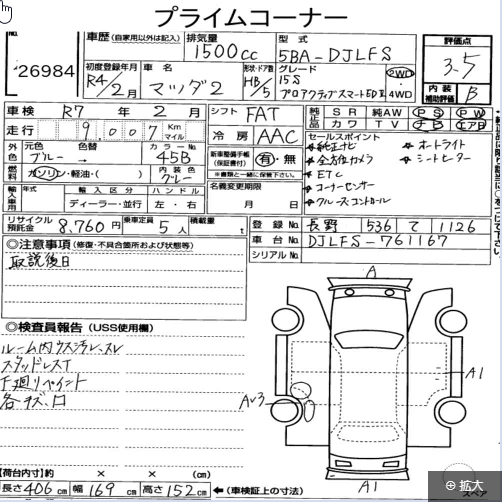 プライムコーナー
No.
26984
車歴 (自家用以外は記入)
排気量
1500cc
型式
5BA-DJLFS
評価点
3.5
初度登録年月
R4/2月
車名
マツダ2
形状・ドア数
HB/5
グレード
15S
プロアクティブスマートEDⅡ
2WD
4WD
内装
補助評価
B
車検 R7年2月
シフト
FAT
純正品
SR 純AW PS PW
カワ TV ナビ エアB
走行 9,007 Km
マイル
冷房
AAC
セールスポイント
純正ナビ
オートライト
全方位カメラ
シートヒーター
ETC
コーナーセンサー
クルーズコントロール
外色
元色
ブルー→
色替
カラーNo.
45B
新車整備手帳
(保証書付)
有・無
※書類と一緒に保管下さい。
燃料
ガソリン・軽油・( )
内装色
グレー
名義変更期限
月 日
輸入車用
年式
輸入区分
ディーラー・並行
ハンドル
左・右
リサイクル預託金
8,760円
乗車定員
5人
積載量
t
登録No. 長野 536 て 1126
車台No. DJLFS-761167
シリアルNo.
◎注意事項 (修復・不具合箇所および状態等)
取説後日
◎検査員報告 (USS使用欄)
ルーム内ウス汚レ、スレ
スタッドレスT
下廻リペイント
各キズ、凹
A
A1
Aw3
A1
【荷台内寸】約 × × (cm)
長さ406cm 幅169cm 高さ152cm ←(車検証上の寸法)
スペア
拡大